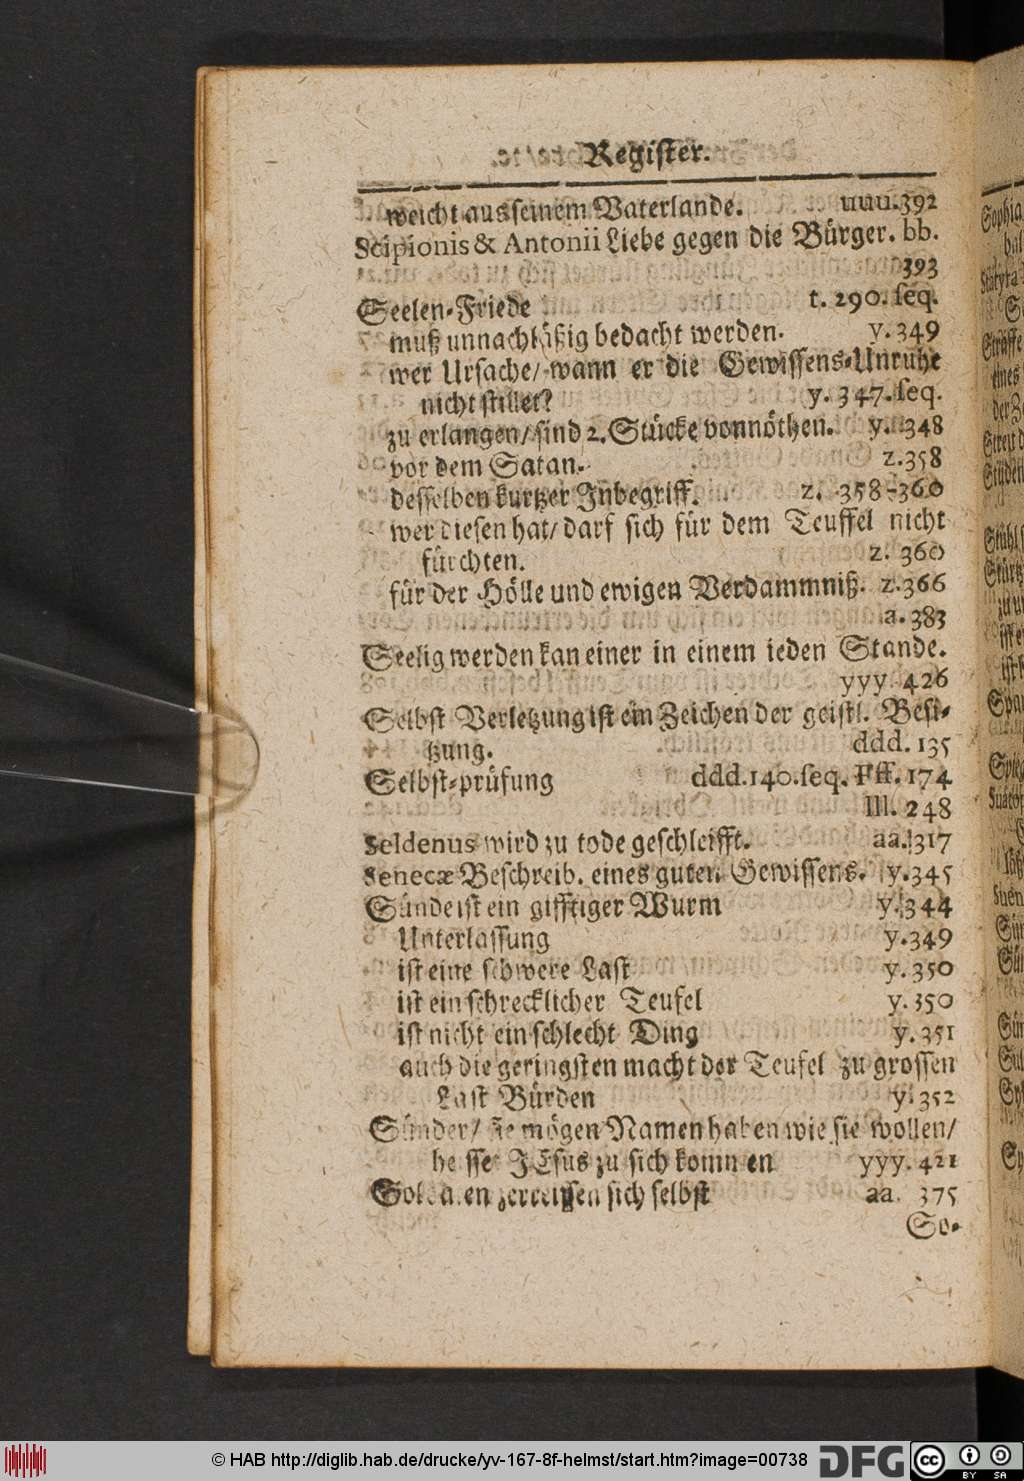 Register.
weicht aus seinem Vaterlande. uuu.392
Scipionis & Antonii Liebe gegen die Bürger. bb.
393
Seelen-Friede t. 290. ſeq.
muß unnachläßig bedacht werden. y. 349
wer Ursache/ wann er die Gewissens-Unruhe
nicht stillet? y. 347. ſeq.
zu erlangen/ sind 2. Stücke vonnöthen. y. 348
vor dem Satan. z.358
desselben kurtzer Inbegriff. z. 358-360
wer diesen hat/ darf sich für dem Teuffel nicht
fürchten. z. 360
für der Hölle und ewigen Verdammniß. z.366
a. 383
Seelig werden kan einer in einem ieden Stande.
yyy. 426
Selbst Verletzung ist ein Zeichen der geistl. Besi-
tzung. ddd. 135
Selbst-prüfung ddd.140.ſeq. Fff. 174
lll. 248
Seldenus wird zu tode geschleifft. aa. 317
Senecæ Beschreib. eines guten Gewissens. y.345
Sünde ist ein gifftiger Wurm y. 344
Unterlassung y.349
ist eine schwere Last y. 350
ist ein schrecklicher Teufel y. 350
ist nicht ein schlecht Ding y. 351
auch die geringsten macht der Teufel zu grossen
Last Bürden y. 352
Sünder/ sie mögen Namen haben wie sie wollen/
heisset JEsus zu sich kommen yyy. 421
Soldaten zerreissen sich selbst aa. 375
So-
© HAB http://diglib.hab.de/drucke/yv-167-8f-helmst/start.htm?image=00738
DFG
cc
BY SA